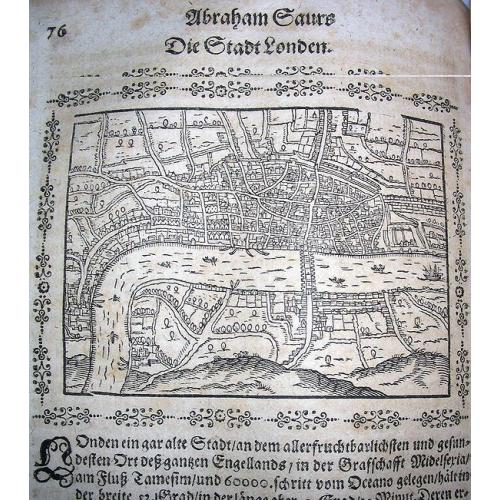 76
Abraham Saurs
Die Stadt Londen.
LOnden ein gar alte Stadt/an dem allerfruchtbarlichsten und gesun-
desten Ort deß gantzen Engellands/in der Graffschafft Midelseria/
am Fluß Tamesim/und 60000.schritt vom Oceano gelegen/hält in
der breite